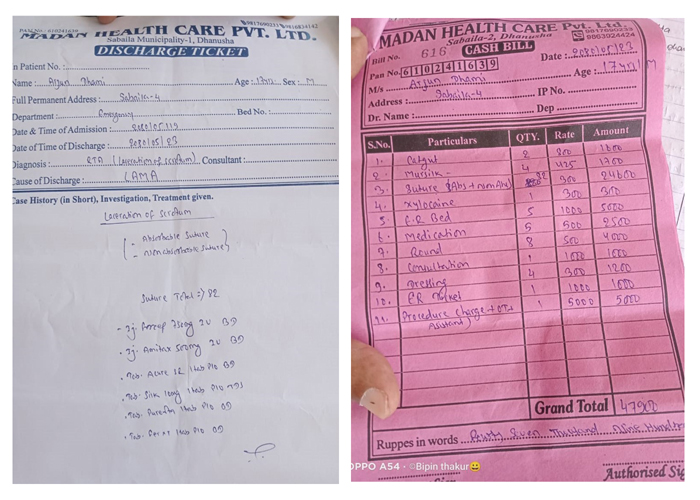 PAN No.: 610241639
9817690233, 9816824142
MADAN HEALTH CARE PVT. LTD.
Sabaila Municipality-1, Dhanusha
DISCHARGE TICKET
In Patient No.:
Name: Arjun Dhami Age: 17yrs Sex: M
Full Permanent Address: Sabaila-4
Department: Emergency Bed No.:
Date & Time of Admission: 2080/05/19
Date of Time of Discharge: 2080/05/23
Diagnosis: RTA (Laceration of scrotum). Consultant:
Cause of Discharge: LAMA
Case History (in Short), Investigation, Treatment given.
Laceration of Scrotum
- Absorbable Suture
- Non absorbable Suture
Suture Total => 82
BD
- Inj. Amitax 500mg IV BD
1 tab P/O BD
1 tab P/O TDS
1 tab P/O BD
1 tab P/O BD
MADAN HEALTH CARE Pvt. Ltd.
Sabaila-2, Dhanusha
9817690233
9863924424
Bill No. 616 CASH BILL Date: 2080/05/23
Pan No. 610241639
M/s Arjun Dhami Age: 17yrs/M
Address: Sabaila-4 IP No.
Dr. Name: Dep
S.No. Particulars QTY. Rate Amount
1. Catgut 2 800 1600
2. Mersilk 4 425 1700
3. Suture (Abs + non Abs) 82 300 24600
4. Xylocaine 1 300 300
5. E.R Bed 5 1000 5000
6. Medication 5 500 2500
7. Round 8 500 4000
8. Consultation 1 1000 1000
9. Dressing 4 300 1200
10. ER Ticket 1 1000 1000
11. Procedure charge + OT + Assistant 1 5000 5000
Grand Total 47900
Ruppes in words Fourty Seven Thousand Nine Hundred
Authorised Sig
OPPO A54 · ©Bipin thakur😀